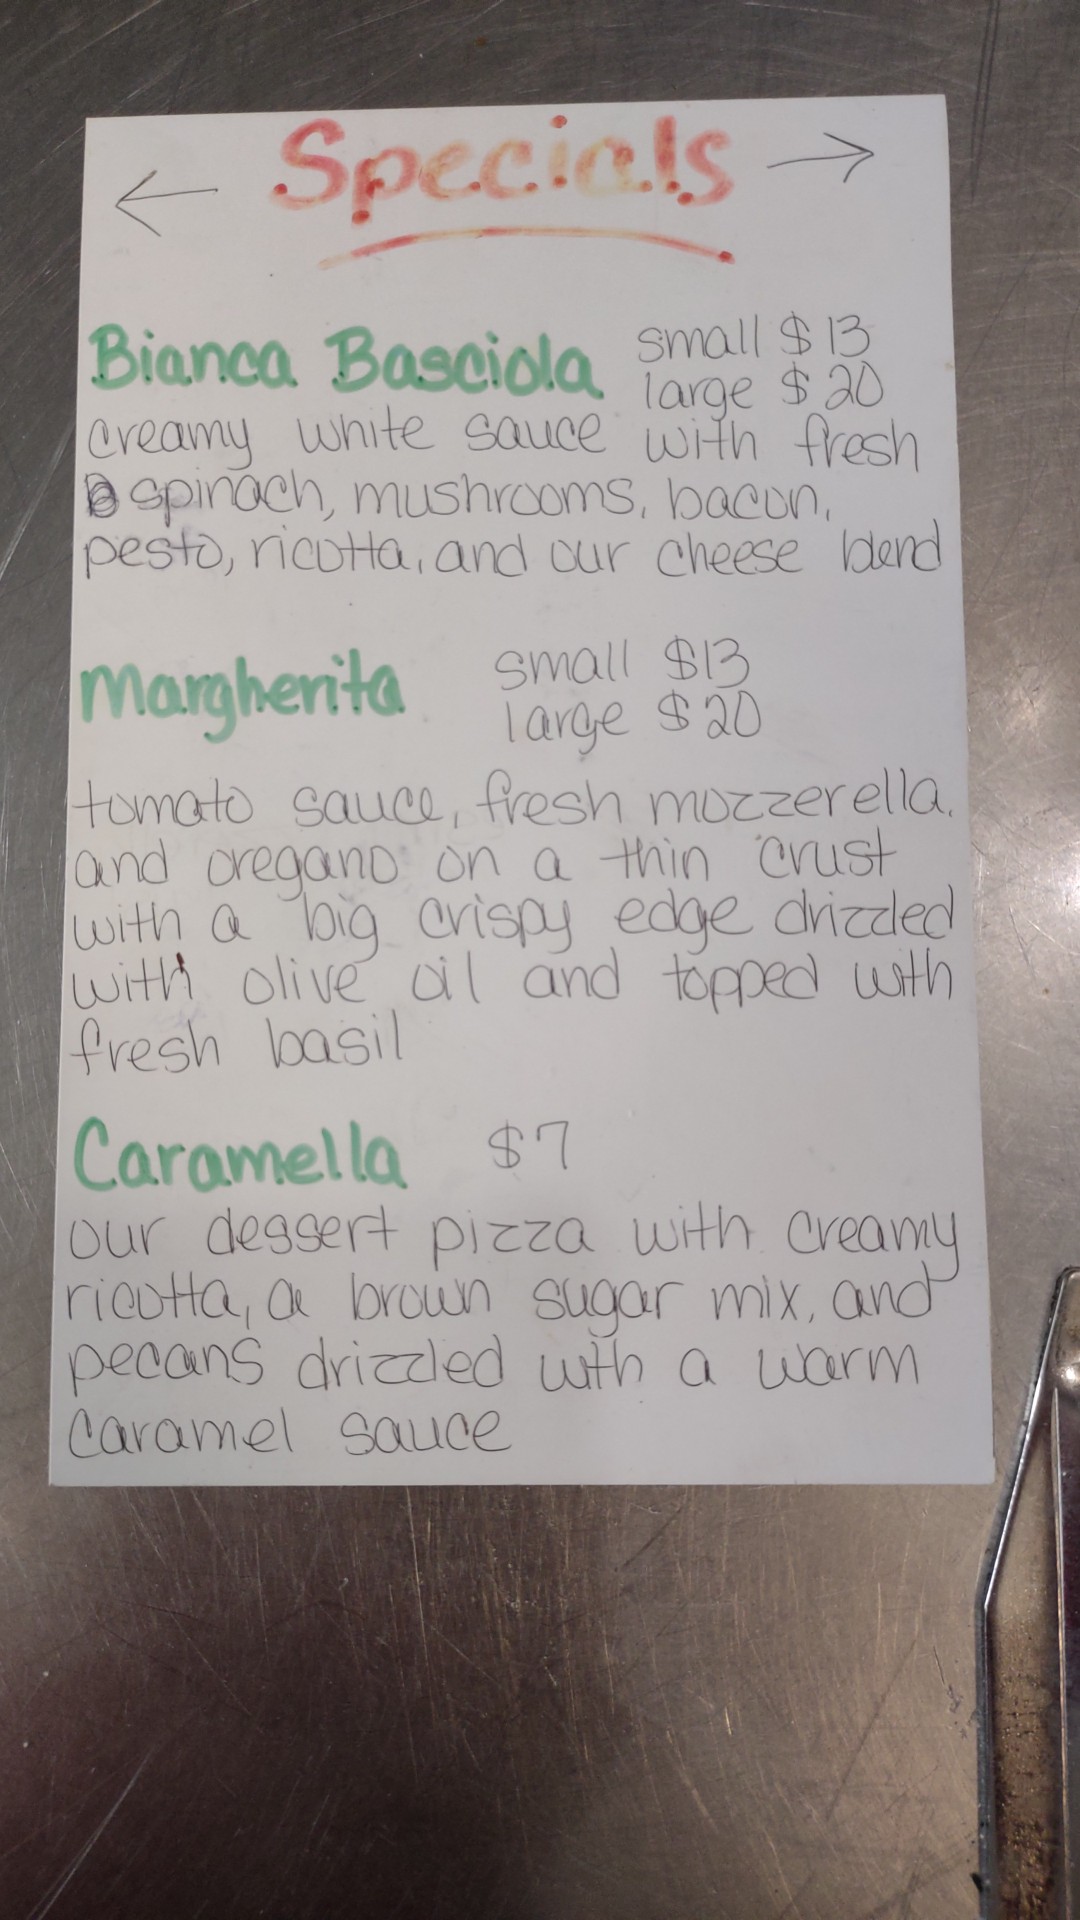 Specials
Bianca Basciola small $13
large $20
creamy white sauce with fresh
spinach, mushrooms, bacon,
pesto, ricotta, and our cheese blend
Margherita small $13
large $20
tomato sauce, fresh mozzerella,
and oregano on a thin crust
with a big crispy edge drizzled
with olive oil and topped with
fresh basil
Caramella $7
our dessert pizza with creamy
ricotta, a brown sugar mix, and
pecans drizzled with a warm
caramel sauce